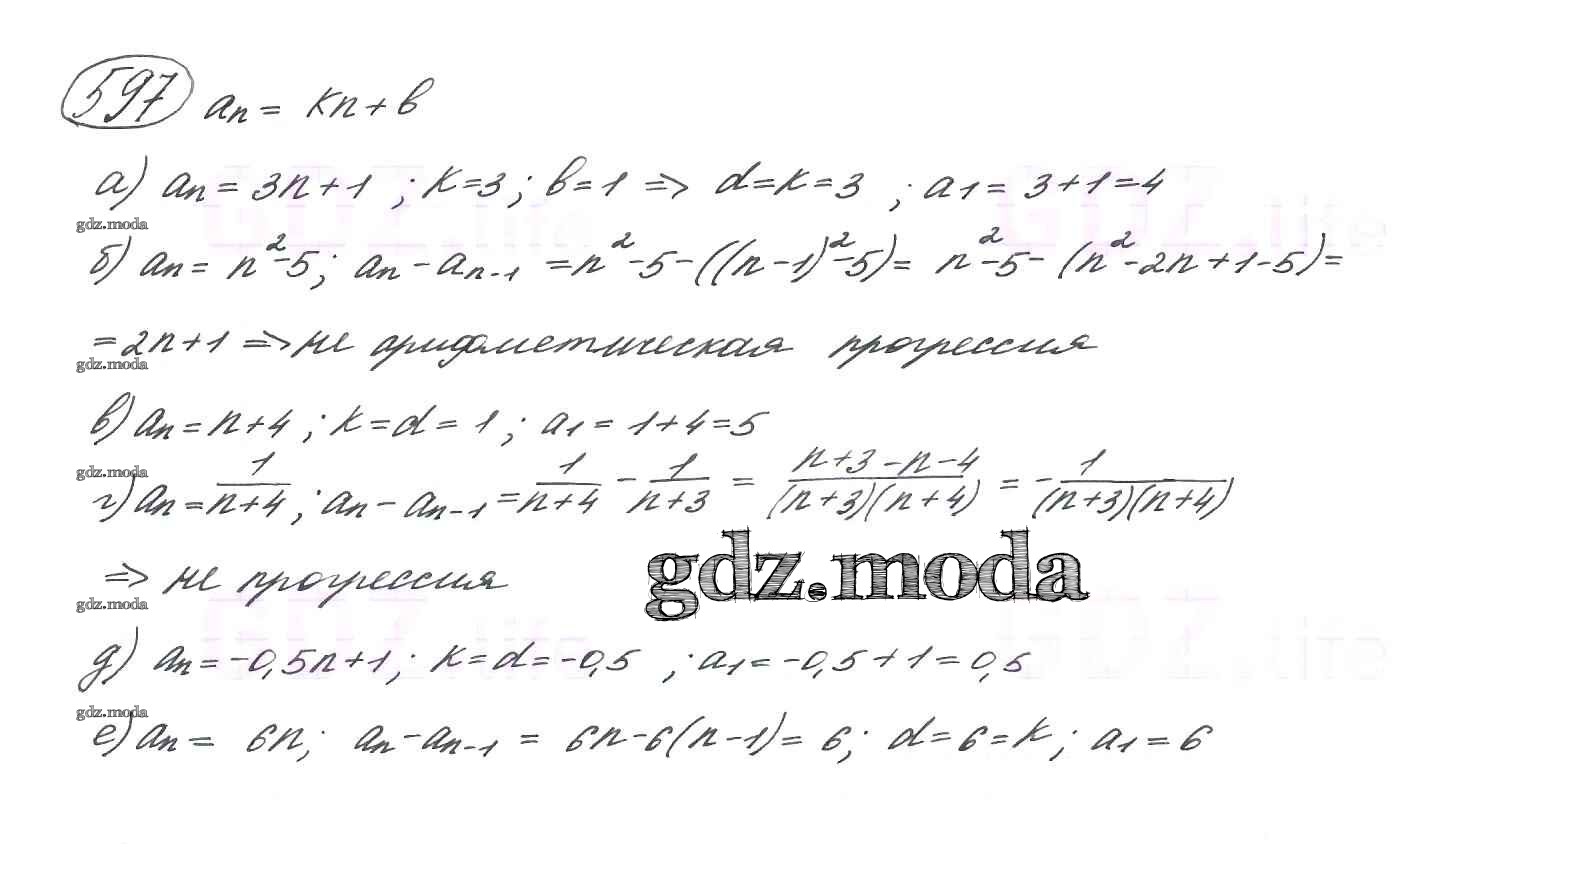 597 aₙ = kn + b
а) aₙ = 3n + 1 ; k = 3 ; b = 1 => d = k = 3 ; a₁ = 3 + 1 = 4
gdz.moda
б) aₙ = n² - 5 ; aₙ - aₙ₋₁ = n² - 5 - ((n - 1)² - 5) = n² - 5 - (n² - 2n + 1 - 5) =
= 2n + 1 => не арифметическая прогрессия
gdz.moda
в) aₙ = n + 4 ; k = d = 1 ; a₁ = 1 + 4 = 5
gdz.moda
г) aₙ = 1/(n + 4) ; aₙ - aₙ₋₁ = 1/(n + 4) - 1/(n + 3) = (n + 3 - n - 4)/((n + 3)(n + 4)) = - 1/((n + 3)(n + 4))
=> не прогрессия
gdz.moda
gdz.moda
д) aₙ = -0,5n + 1 ; k = d = -0,5 ; a₁ = -0,5 + 1 = 0,5
gdz.moda
е) aₙ = 6n ; aₙ - aₙ₋₁ = 6n - 6(n - 1) = 6 ; d = 6 = k ; a₁ = 6
GDZ.life
GDZ.life
GDZ.life
GDZ.life